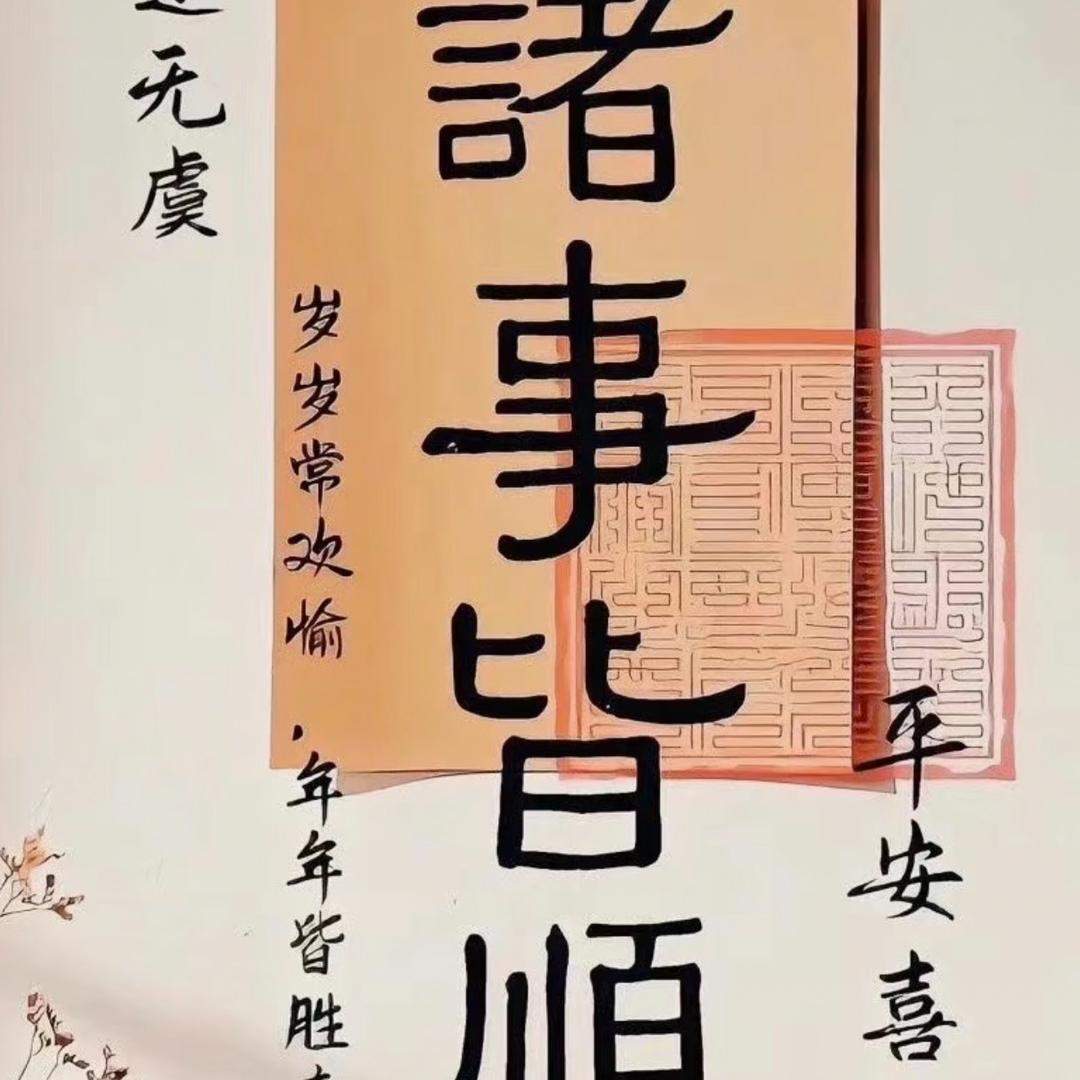 諸事皆順
无虞
岁岁常欢愉
，年年皆胜
平安喜